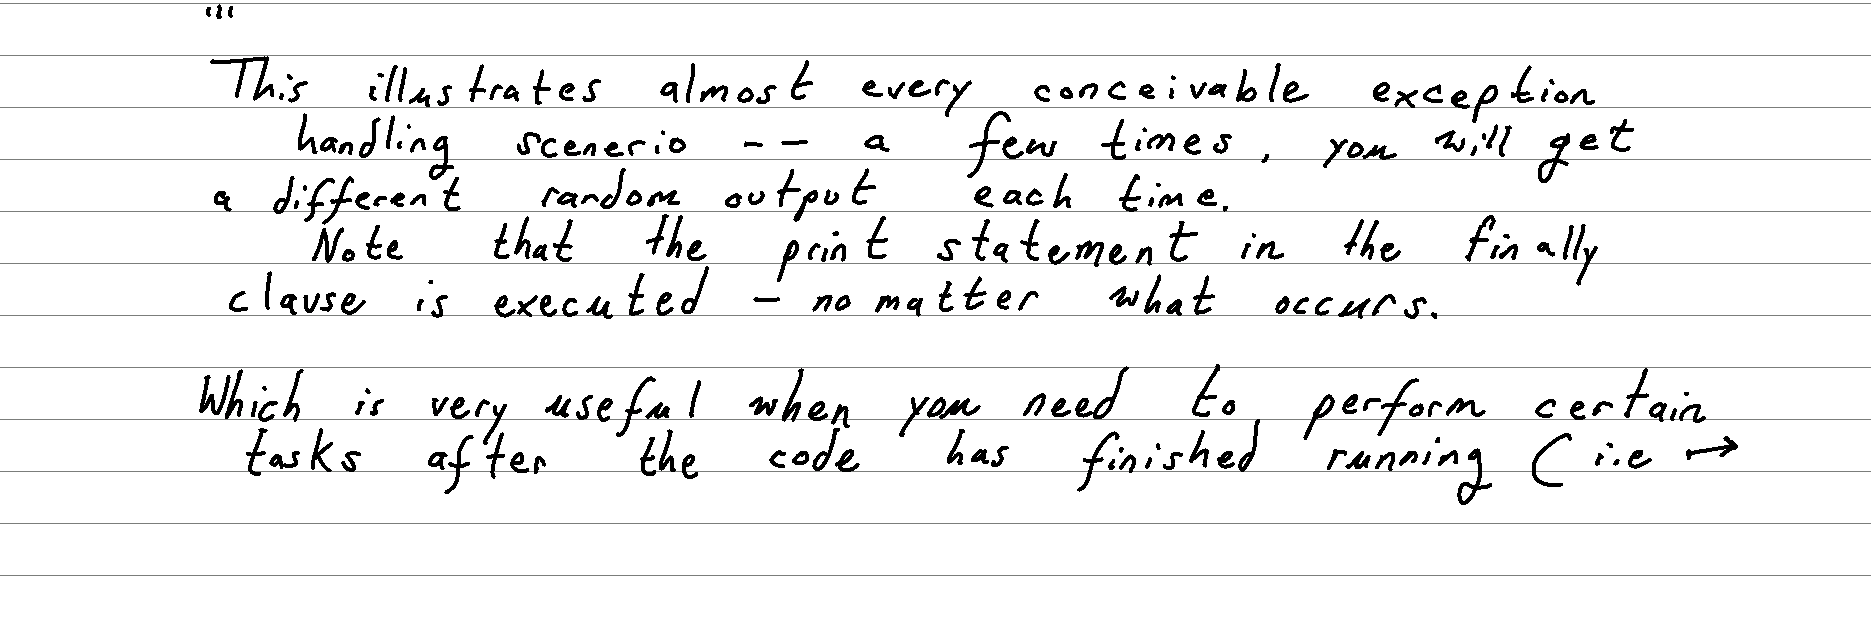 '''
This illustrates almost every conceivable exception
handling scenerio -- a few times, you will get
a different random output each time.
Note that the print statement in the finally
clause is executed - no matter what occurs.
Which is very useful when you need to perform certain
tasks after the code has finished running (i.e →